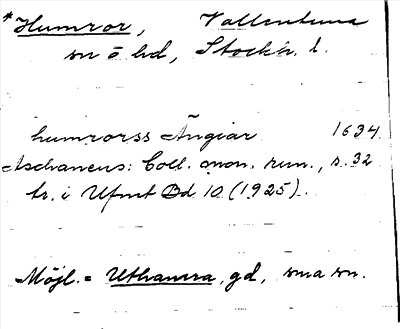 *Humror, Vallentuna
sn ö hd, Stockh. l.
humrorss Ängiar 1634
Aschaneus: Coll. mon. run., s. 32
tr. i Ufmt Bd 10 (1925).
Möjl. = Uthamra, gd, sma sn.